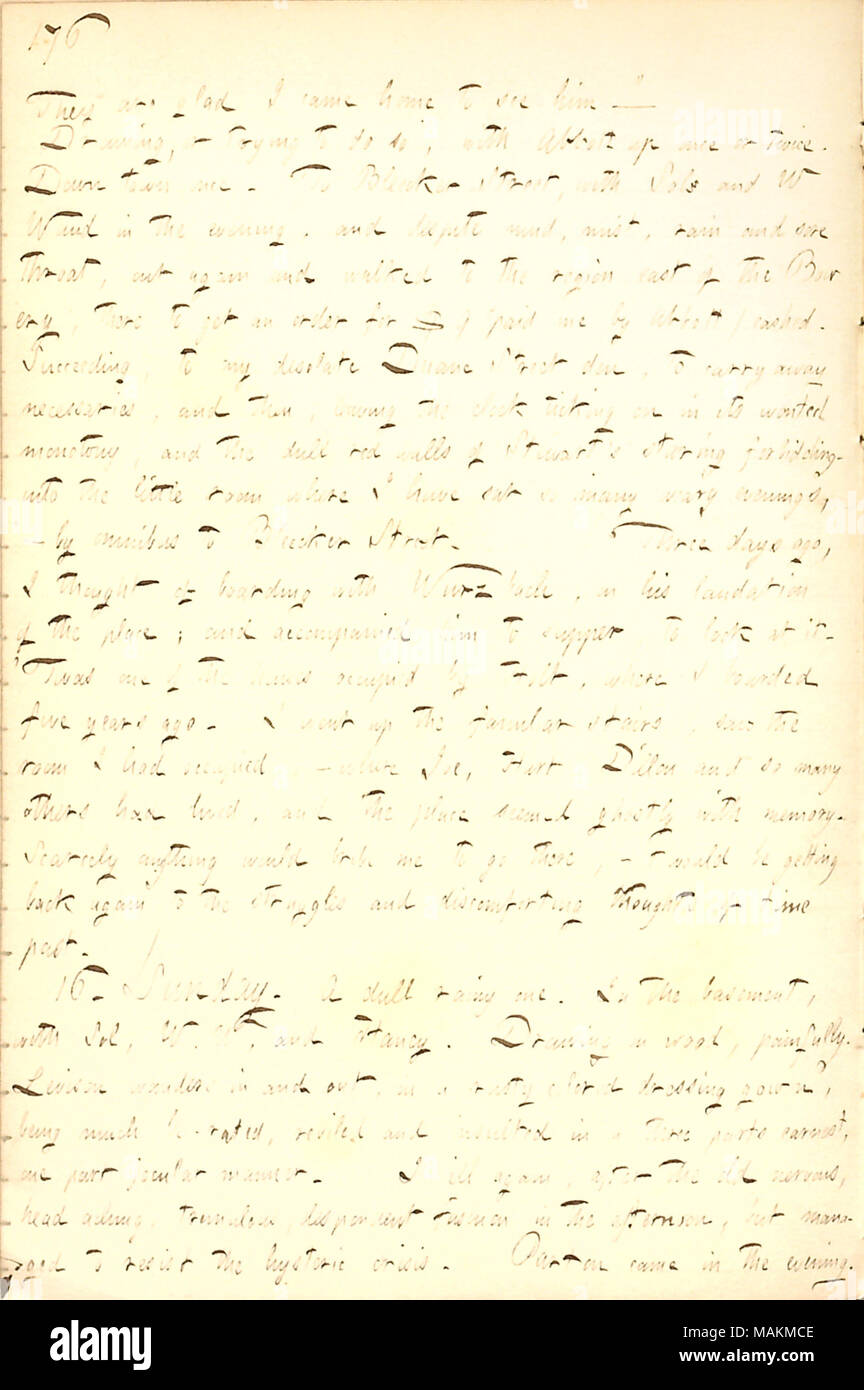 176
They are glad I came home to see him —"
Drawing, or trying to do so, with Abbott up once or twice.
Down town once. To Bleecker Street, with Sol and W
Waud in the evening, and despite mud, mist, rain and sore
throat, out again and walked to the region east of the Bow
ery, there to get an order for $ (paid me by Abbott) cashed.
Succeeding, to my desolate Duane Street den, to carry away
necessaries, and then, leaving the clock ticking on in its wonted
monotony, and the dull red walls of Stewart's staring forbidding-
into the little room where I have sat so many weary evenings,
— by omnibus to Bleecker Street. Three days ago,
I thought of boarding with Wurzbach, on his laudation
of the place; and accompanied him to supper to look at it.
'Twas one of the houses occupied by Holt, where I boarded
five years ago. I went up the familiar stairs, saw the
room I had occupied, — where Joe, Hart, Dillon and so many
others had lived, and the place seemed ghostly with memory.
Scarcely anything would bribe me to go there, — 'twould be getting
back again to the struggles and discomforting thoughts of time
past.
16. Sunday. A dull rainy one. In the basement,
with Sol, W. W, and Haney. Drawing on wood, painfully.
Levison wanders in and out, in a rusty color'd dressing gown,
being much be-rated, reviled and insulted in a three parts earnest,
one part jocular manner. I ill again, after the old nervous,
head aching, tremulous, despondent fashion in the afternoon, but mana-
ged to resist the hysteric crisis. Parton came in the evening.
alamy
Image ID: MAKMCE
www.alamy.com